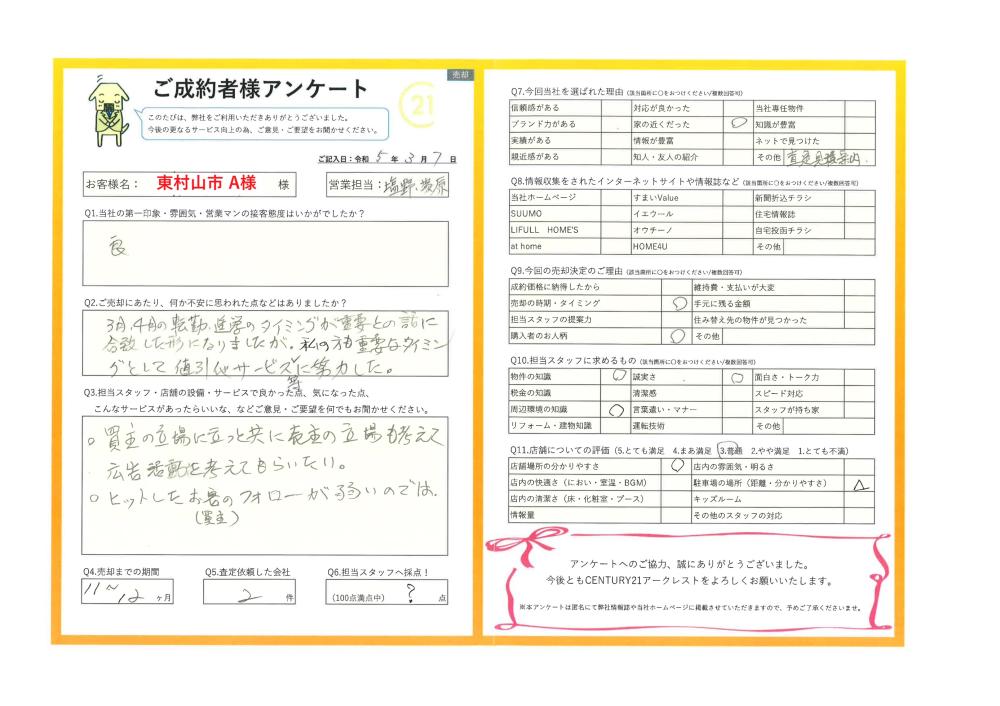 売却
ご成約者様アンケート
21
このたびは、弊社をご利用いただきありがとうございました。
今後の更なるサービス向上の為、ご意見・ご要望をお聞かせください。
ご記入日：令和 5 年 3 月 7 日
お客様名： 東村山市 A様 様
営業担当：塩野、萩原
Q1.当社の第一印象・雰囲気・営業マンの接客態度はいかがでしたか？
良
Q2.ご売却にあたり、何か不安に思われた点などはありましたか？
3月、4月の転勤、進学のタイミングが重要との話に
合致した形になりましたが、私の方も重要なタイミン
グとして値引やサービス等に努力した。
Q3.担当スタッフ・店舗の設備・サービスで良かった点、気になった点、
こんなサービスがあったらいいな、などご意見・ご要望を何でもお聞かせください。
○ 買主の立場に立つと共に売主の立場も考えて
広告活動を考えてもらいたい。
○ ヒットしたお客のフォローが弱いのでは、
(買主)
Q4.売却までの期間
11〜12 ヶ月
Q5.査定依頼した会社
2 件
Q6.担当スタッフへ採点！
(100点満点中) ? 点
Q7.今回当社を選ばれた理由 (該当箇所に○をおつけください/複数回答可)
信頼感がある 対応が良かった 当社専任物件
ブランド力がある 家の近くだった ○ 知識が豊富
実績がある 情報が豊富 ネットで見つけた
親近感がある 知人・友人の紹介 その他
Q8.情報収集をされたインターネットサイトや情報誌など (該当箇所に○をおつけください/複数回答可)
当社ホームページ すまいValue 新聞折込チラシ
SUUMO イエウール 住宅情報誌
LIFULL HOME'S オウチーノ 自宅投函チラシ
at home HOME4U その他
Q9.今回の売却決定のご理由 (該当箇所に○をおつけください/複数回答可)
成約価格に納得したから 維持費・支払いが大変
売却の時期・タイミング ○ 手元に残る金額
担当スタッフの提案力 住み替え先の物件が見つかった
購入者のお人柄 ○ その他
Q10.担当スタッフに求めるもの (該当箇所に○をおつけください/複数回答可)
物件の知識 ○ 誠実さ ○ 面白さ・トーク力
税金の知識 清潔感 スピード対応
周辺環境の知識 ○ 言葉遣い・マナー スタッフが持ち家
リフォーム・建物知識 運転技術 その他
Q11.店舗についての評価 (5.とても満足 4.まあ満足 3.普通 2.やや満足 1.とても不満)
店舗場所の分かりやすさ ○ 店内の雰囲気・明るさ
店内の快適さ（におい・室温・BGM） 駐車場の場所（距離・分かりやすさ） △
店内の清潔さ（床・化粧室・ブース） キッズルーム
情報量 その他のスタッフの対応
アンケートへのご協力、誠にありがとうございました。
今後ともCENTURY21アークレストをよろしくお願いいたします。
※本アンケートは匿名にて弊社情報誌や当社ホームページに掲載させていただきますので、予めご了承くださいませ。